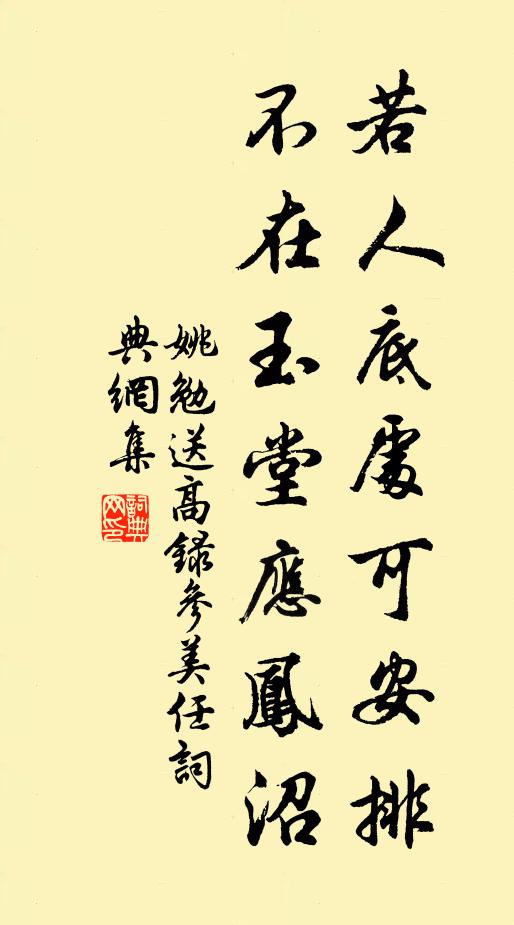 若人底處可安排
不在玉堂應鳳沼
姚勉送高錄參美任詞
典網集
詞典網印